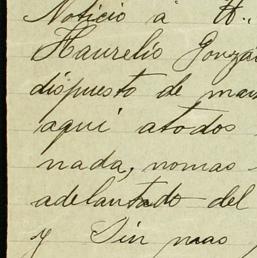 Noticio á H..
Haurelio Gonza
dispuesto de man
aqui atodos
nada, nomas
adelantado del
y Sin mas